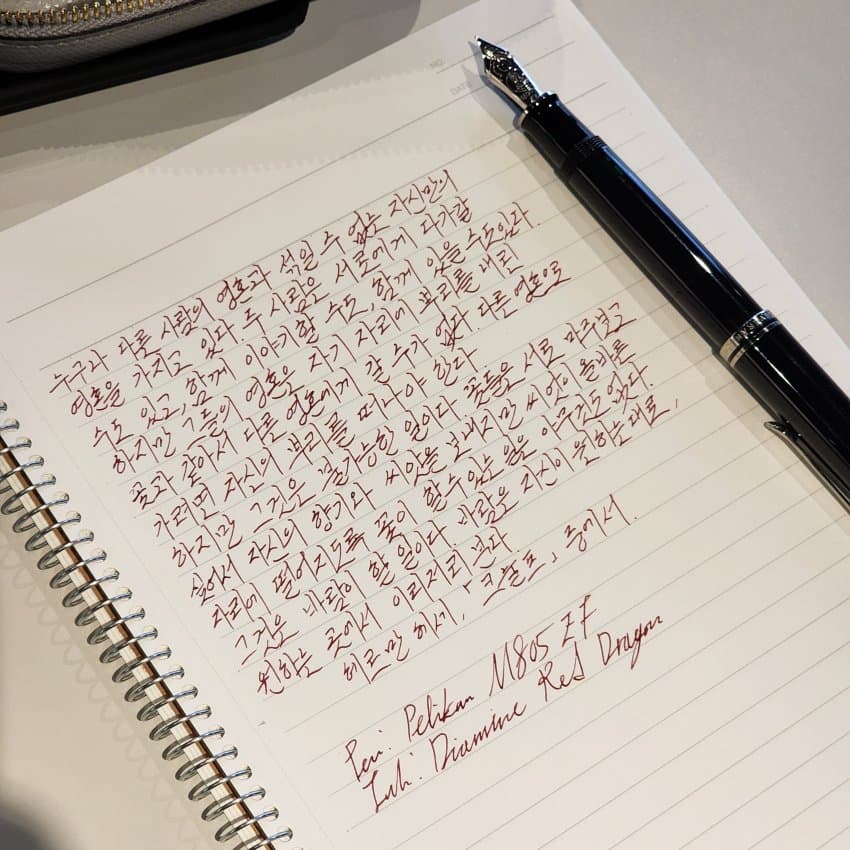 NO.
DATE
누구나 다른 사람의 영혼과 섞일 수 없는 자신만의
영혼을 가지고 있다. 두 사람은 서로에게 다가갈
수도 있고, 함께 이야기할 수도, 함께 있을 수도있다.
하지만 그들의 영혼은 자기 자리에 뿌리를 내린
꽃과 같아서 다른 영혼에게 갈 수가 없다. 다른 영혼으로
가려면 자신의 뿌리를 떠나야 한다
하지만 그것은 불가능한 일이다. 꽃들은 서로 마주보고
싶어서 자신의 향기와 씨앗을 보내지만 씨앗이 올바른
자리에 떨어지도록 꽃이 할 수 있는 일은 아무것도 없다.
그것은 바람이 할 일이다. 바람은 자신이 원하는대로,
원하는 곳에서 이리저리 분다
헤르만 헤세, '크눌프', 중에서.
Pen: Pelikan M805 EF
Ink: Diamine Red Dragon